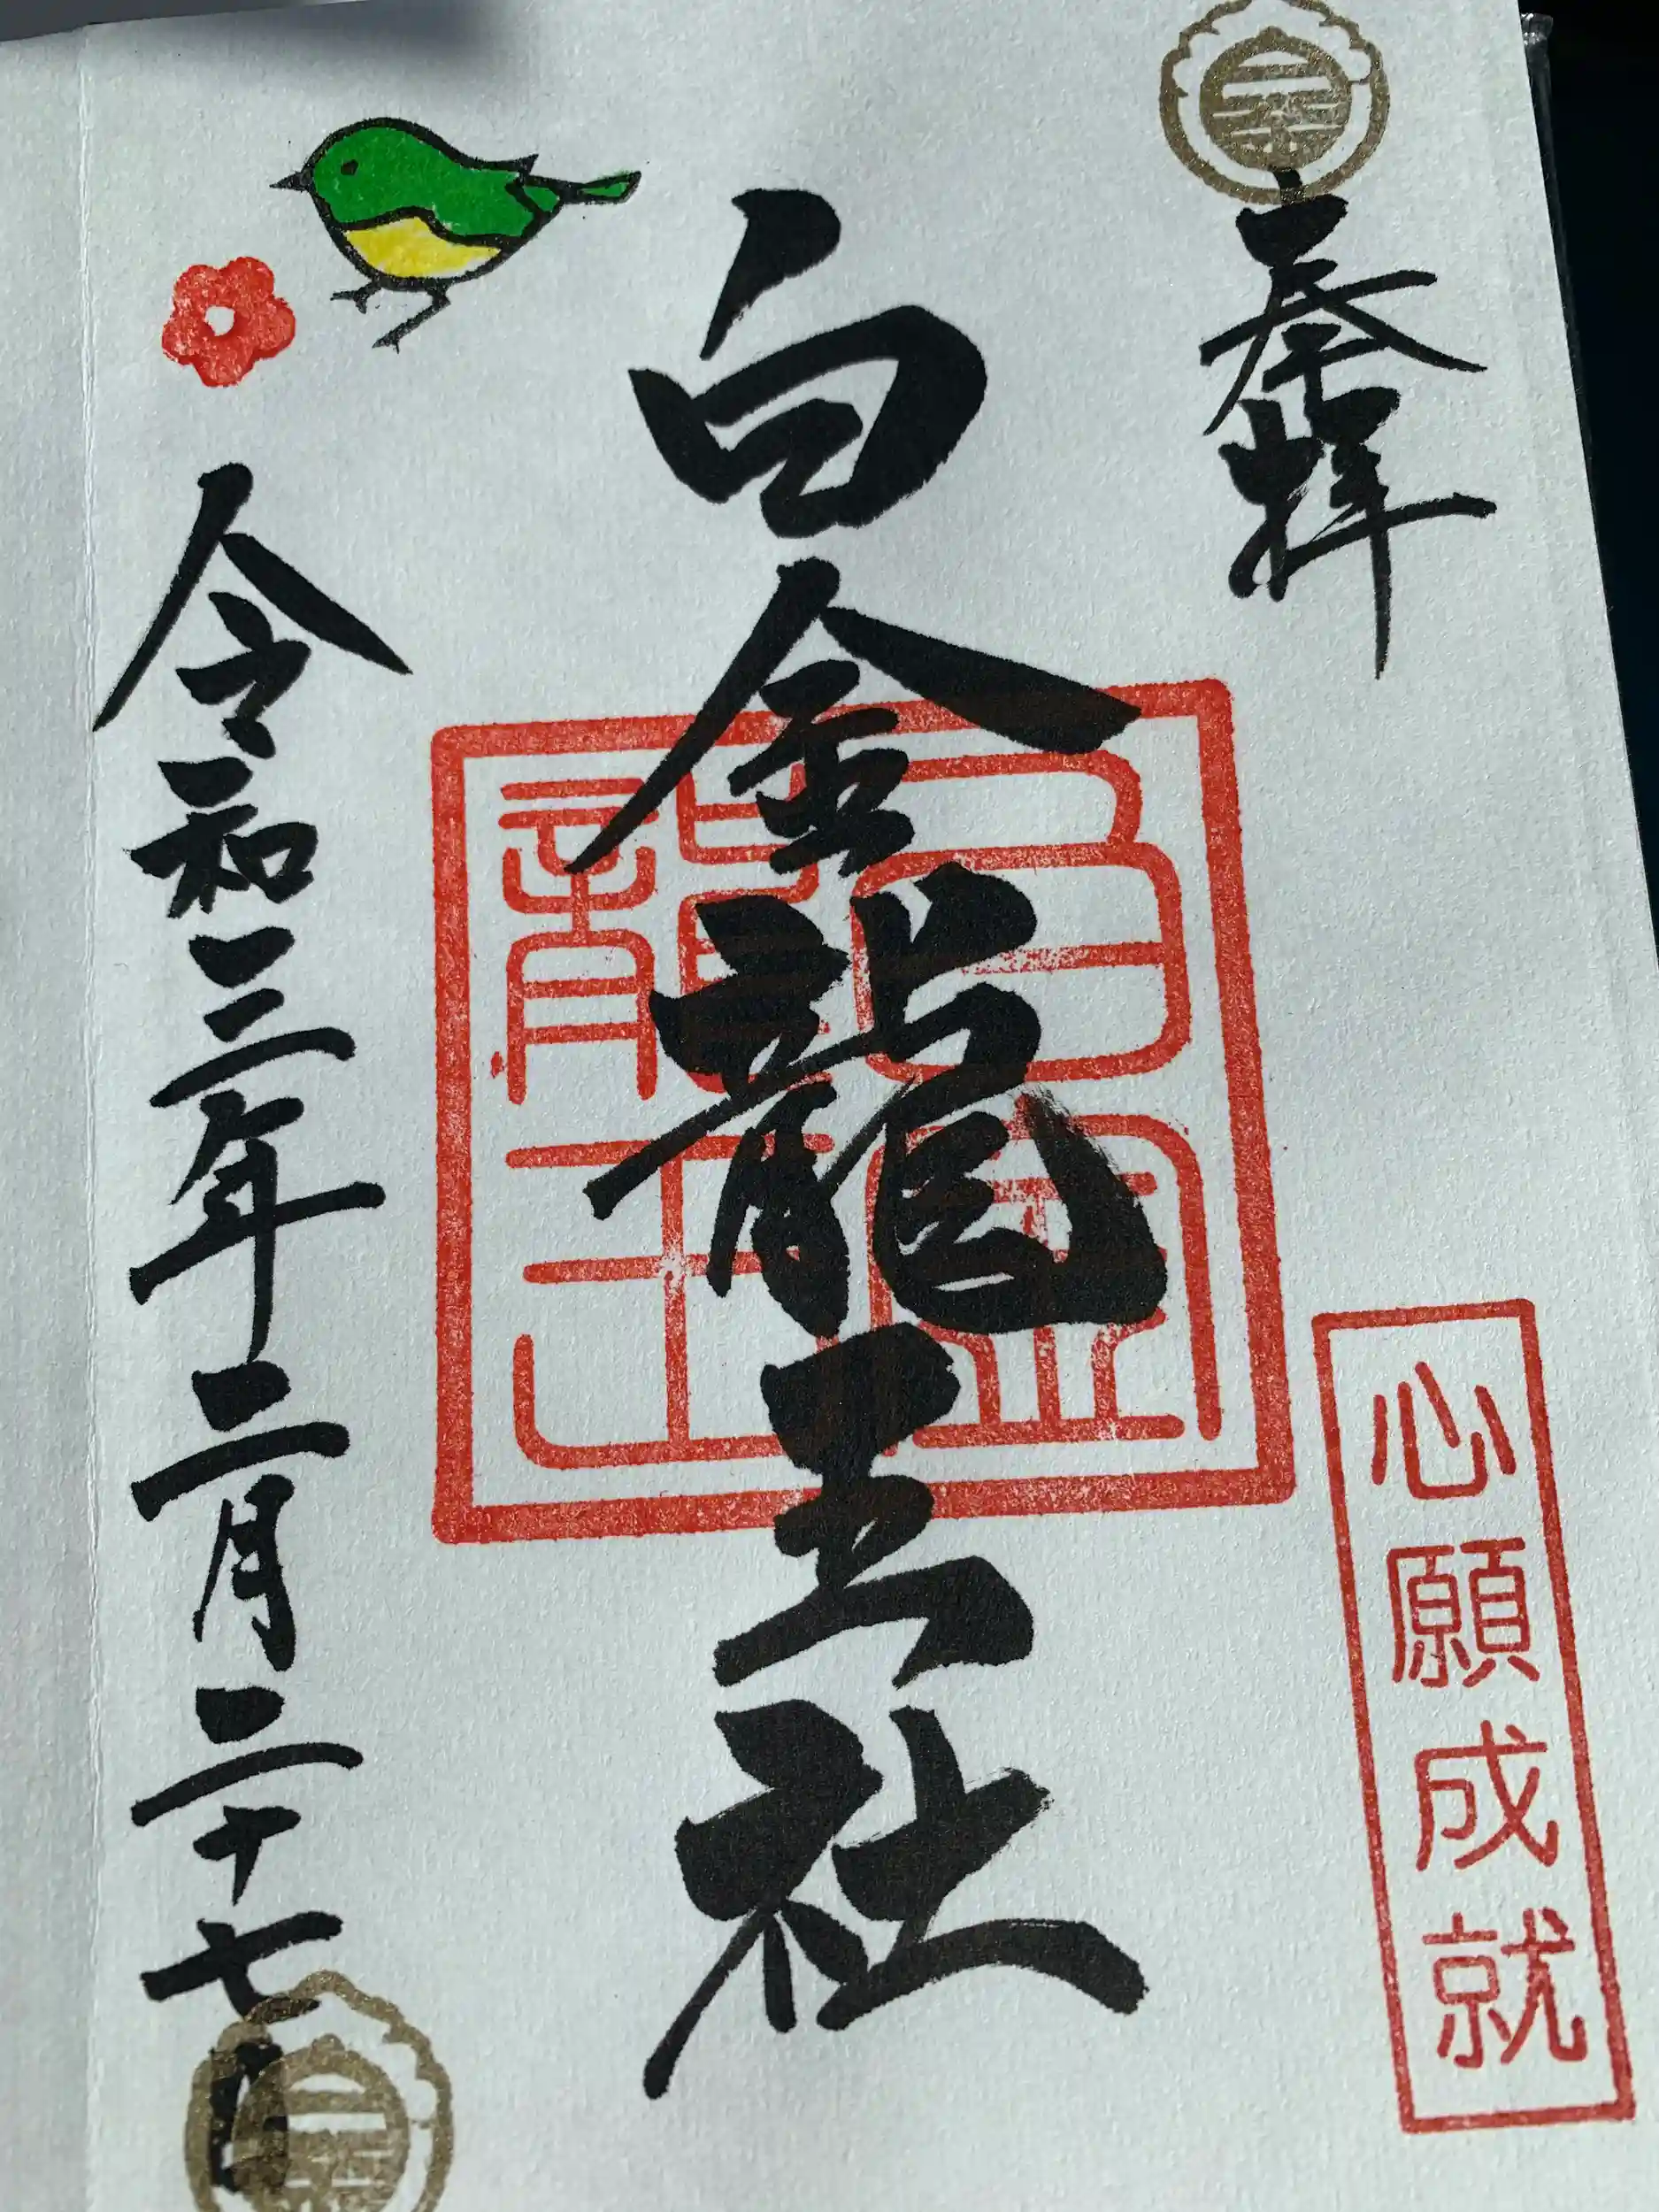 奉拝
心願成就
白金龍王社
白金
龍王
令和三年二月二十七日